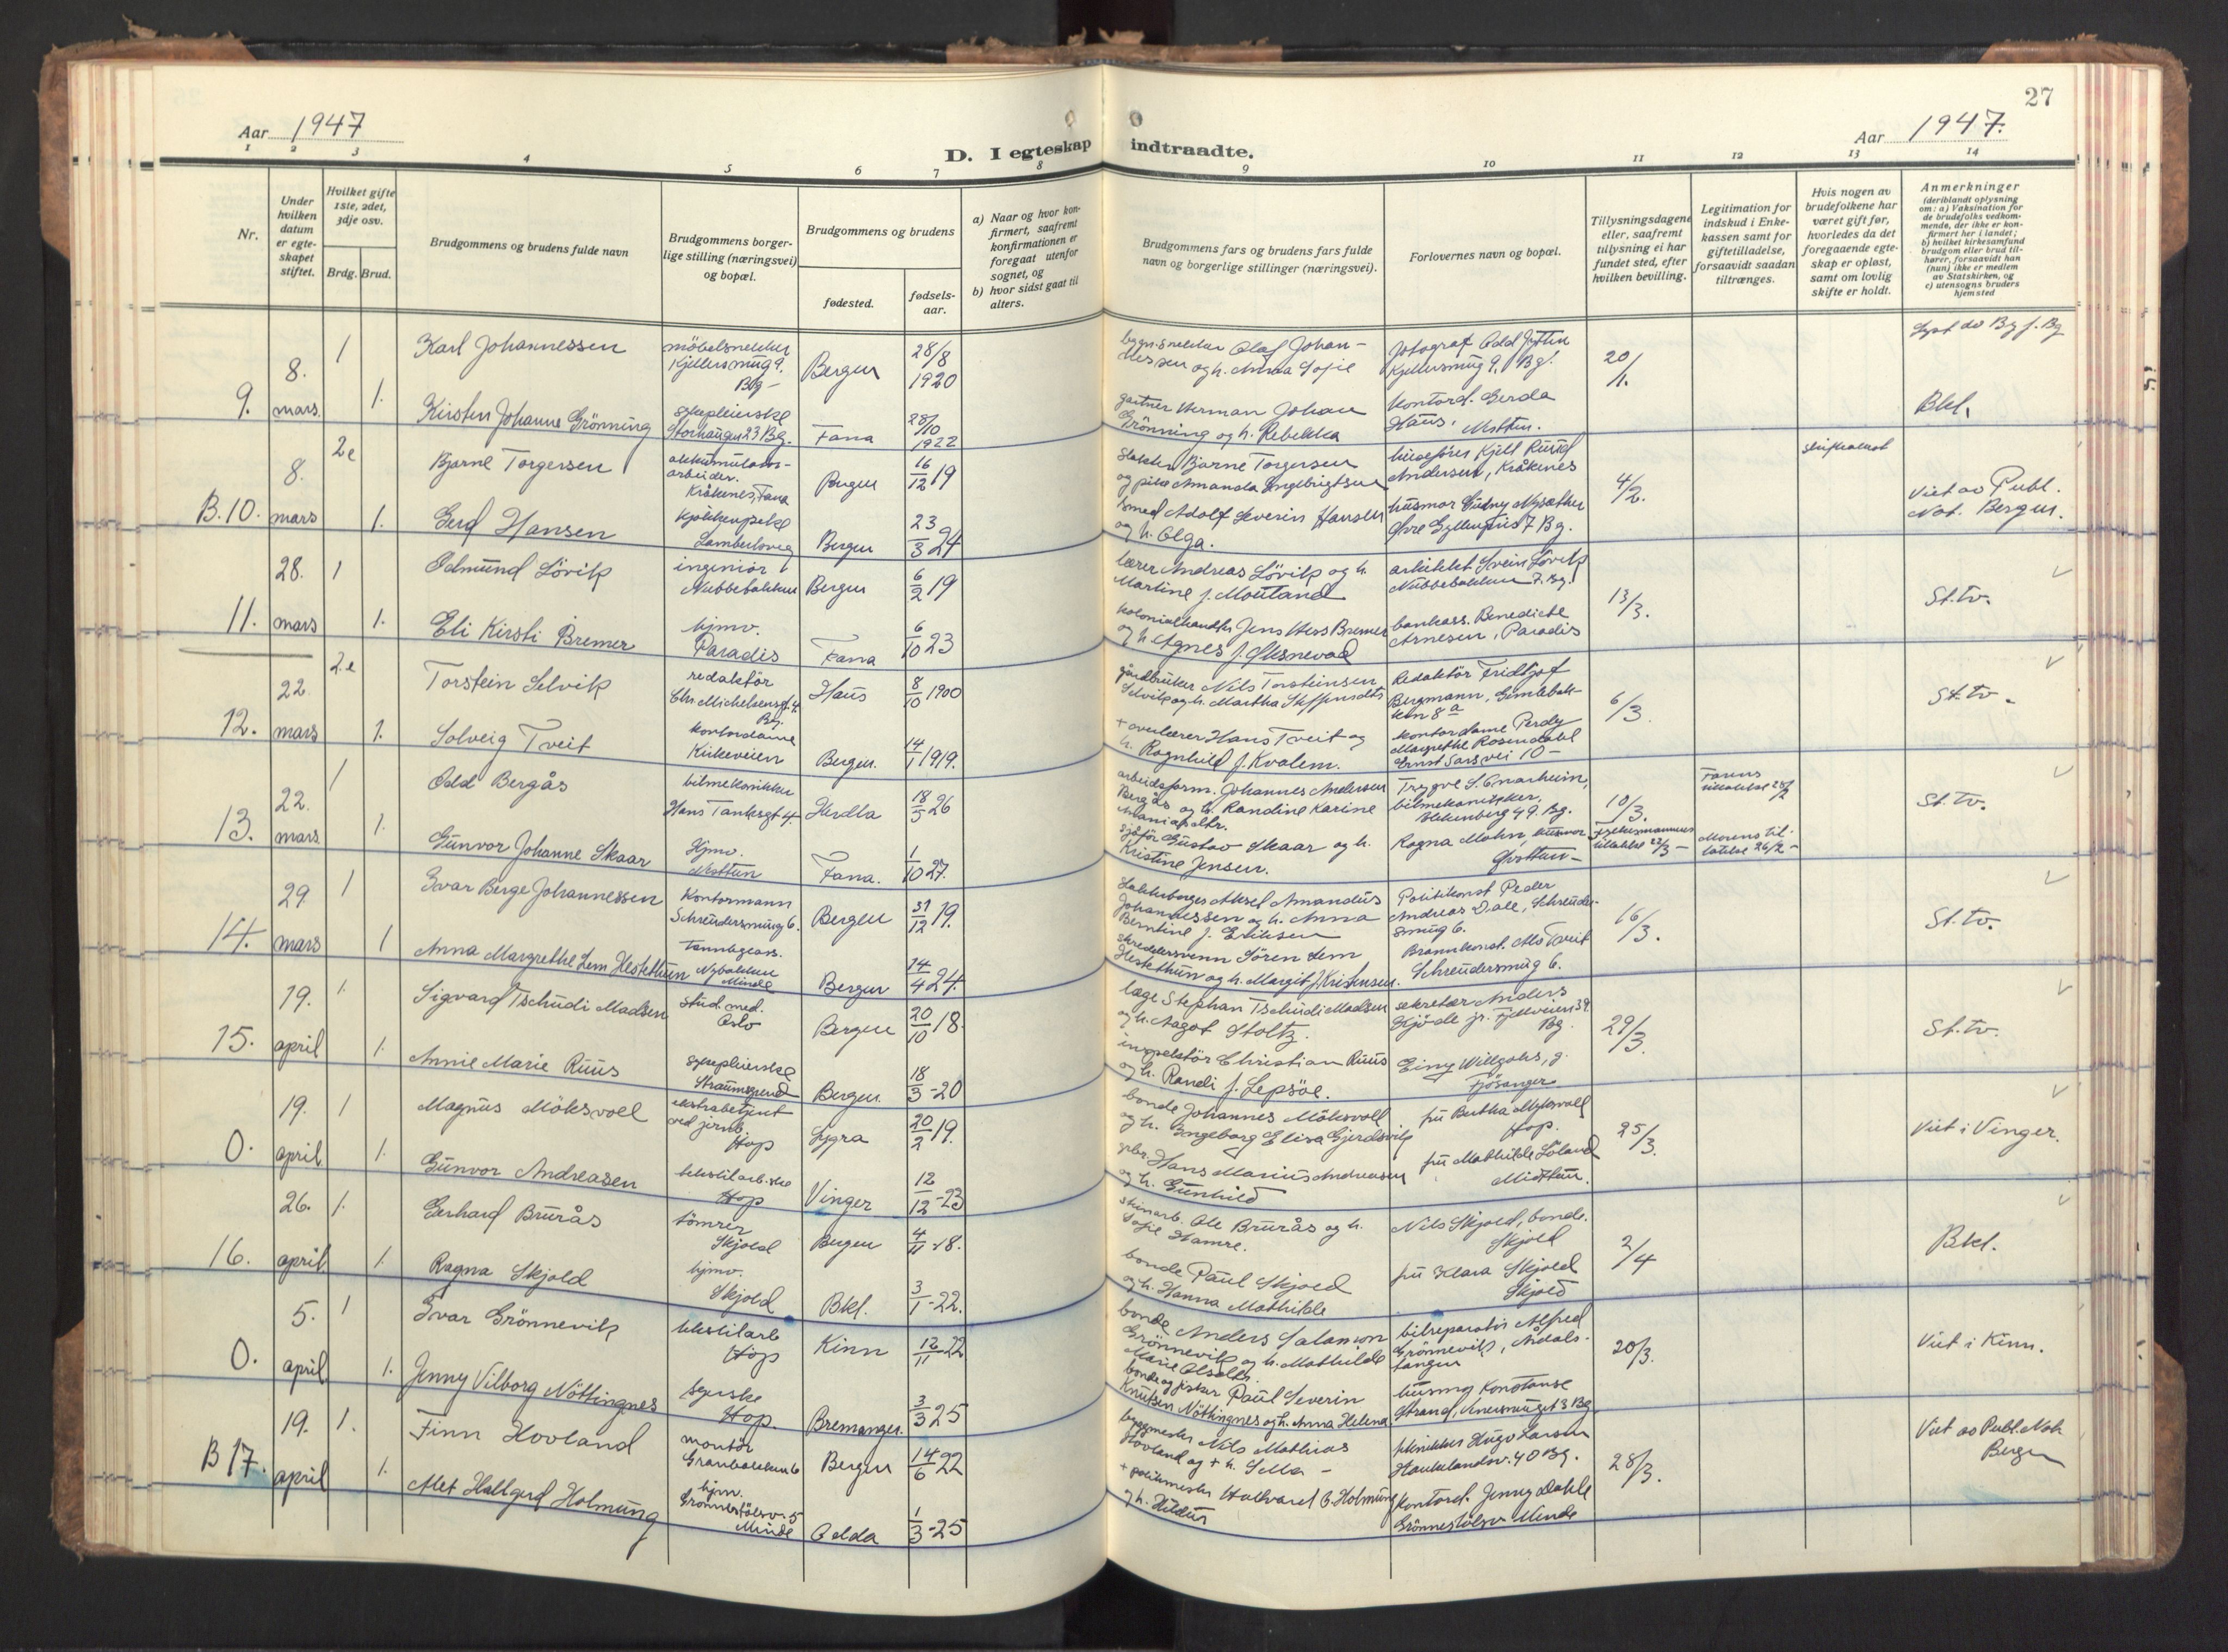 27
Aar 1947
D. I egteskap indtraadte.
Aar 1947.
1 2 3 4 5 6 7 8 9 10 11 12 13 14
Nr.
Under hvilken datum er egteskapet stiftet.
Hvilket gifte 1ste, 2det, 3dje osv.
Brdg. Brud.
Brudgommens og brudens fulde navn
Brudgommens borgerlige stilling (næringsvei) og bopæl.
Brudgommens og brudens
fødested.
fødselsaar.
a) Naar og hvor konfirmert, saafremt konfirmationen er foregaat utenfor sognet, og
b) hvor sidst gaat til alters.
Brudgommens fars og brudens fars fulde navn og borgerlige stillinger (næringsvei).
Forlovernes navn og bopæl.
Tillysningsdagene eller, saafremt tillysning ei har fundet sted, efter hvilken bevilling.
Legitimation for indskud i Enkekassen samt for giftetilladelse, forsaavidt saadan tiltrænges.
Hvis nogen av brudefolkene har været gift før, hvorledes da det foregaaende egteskap er opløst, samt om lovlig skifte er holdt.
Anmerkninger (deriblandt oplysning om: a) Vaksination for de brudefolks vedkommende, der ikke er konfirmert her i landet; b) hvilket kirkesamfund brudgom eller brud tilhører, forsaavidt han (hun) ikke er medlem av Statskirken, og c) utensogns bruders hjemsted
9. 8. mars 1 Karl Johannessen møbelsnekker Kjellersmug 9. Bg. Bergen 28/8 1920
bygn.snekker Olaf Johannessen og h. Anna Sofie
fotograf Odd Kjellersmug 9, Bg.
20/1.
1. Kirsten Johanne Grönning sykepleierske Storhaugen 23 Bg. Fana 28/10 1922
gartner Herman Johan Grönning og h. Rebekka
kontord. Gerda Haus, Nesttun.
Bkl.
B.10. 8. mars 2e Bjarne Torgersen akkumulatorarbeider. Kråkenes, Fana Bergen 16/12 19
Bjarne Torgersen og Amanda Engebrigtsen
Kjell Ruud Andersen, Kråkenes
4/2.
Viet av Publ. Not. Bergen.
1. Gerd Hansen Bergen 23/3 24
smed Adolf Severin Hansen og h. Olga.
husmor 7 Bg.
11. 28. mars 1 Edmund Lövik ingeniör Nubbebakken Bergen 6/2 19
lærer Andreas Lövik og h. Martine f. Moutland
arkitekt Svein Lövik Nubbebakken 7. Bg.
13/3.
St.tv.
1. Eli Kirsti Bremer hjmv. Paradis Fana 6/10 23
kolonialhandl. Jens Hess Bremer og h. Agnes f.
bankass. Benedicte Arnesen, Paradis
12. 22 mars 2e Torstein Selvik redaktör Chr. Michelsensgt. 4. Bg. Haus 8/10 1900
gårdbruker Nils Torsteinsen Selvik og h. Martha
Redaktör Fridtjof Bergmann, Gimlebakken 8 a
6/3.
St. tv.
1. Solveig Tveit kontordame Kirkeveien Bergen. 14/1 1919.
+ overlærer Hans Tveit og h. Ragnhild f. Kvalem.
kontordame Perdy Margrethe Rosendahl Ernst Sarsvei 10
13. 22. mars 1 Odd Bergås bilmekaniker Hans Tanksgt 4. Herdla 18/5 26
arbeidsform. Johannes Andersen Bergås og h. Randine Karine
Trygve S. bilmekaniker, 49. Bg.
10/3.
Farens tillatelse
St.tv.
1. Gunvor Johanne Skaar Hjmv. Nesttun Fana. 1/10 27.
sjåför Gustav Skaar og h. Kristine Jensen.
Ragna Mohn, husmor
Fylkesmannens tillatelse 22/3
Morens tillatelse 26/2
14. 29 mars 1 Ivar Berge Johannessen Kontormann Schreudersmug 6. Bergen 31/12 19.
Aksel Amandus Johannessen og h. Anna Berntine f. Eriksen
Politikonst. Peder Andreas Dale, Schreudersmug 6.
16/3.
St.tv.
1 Anna Margrethe Lem Hestethun tannlegeass. Nybakken Minde Bergen 14/4 24.
skreddersvenn Sören Lem Hestethun og h. Margit f. Kristensen.
Brannkonst. Als Tveit Schreudersmug 6.
15. 19. april 1 Sigvard Tschudi Madsen stud. med. Oslo Bergen 20/10 18
læge Stephan Tschudi Madsen og h. Aagot Stoltz.
sekretær Anders Kjöde jr. Fjellveien 39. Bg.
29/3.
St. tv.
1. Annie Marie Ruus sykepleierske Straumgrend Bergen. 18/3 -20
inspektör Christian Ruus og h. Randi f. Lepsöe.
Einy Willgohs, g. Fjösanger
0. 19. april 1 Magnus Möksvoll ekstrabetjent ved jernb. Hop Lygra 20/2 19.
bonde Johannes Möksvoll og h. Ingeborg Elisa Gjerdsvik
fru Bertha Möksvoll Hop.
25/3.
Viet i Vinger.
1. Gunvor Andreasen tekstilarb.ske Hop Vinger 12/12 -23
gbr. Hans Marius Andreasen og h. Gunhild
fru Mathilde Löland Midttun.
16. 26. april 1. Gerhard Brurås tömrer Skjold Bergen 4/11 -18.
skinarb. Ole Brurås og h. Sofie Hamre.
Nils Skjold, bonde. Skjold
2/4
Bkl.
1. Ragna Skjold hjmv. Skjold Bkl. 3/1 -22.
bonde Paul Skjold og h. Hanna Mathilde
fru Klara Skjold Skjold
0. 5. april 1 Ivar Grönnevik tekstilarb Hop Kinn 12/11 -22
bonde Anders Salamon Grönnevik og h. Mathilde Marie Olsdtr.
bilreparatör Alfred Grönnevik, Årdalstangen
20/3.
Viet i Kinn.
1. Jenny Vilborg Nöttingnes syerske Hop. Bremanger. 3/3 25
bonde og fisker Paul Severin Knutsen Nöttingnes og h. Anna Helena
Konstanse Strand, 3 Bg
B 17. 19. april 1. Finn Hovland montör Granbakken 6 Bergen 14/6 22
byggmester Nils Mathias Hovland og + h. Sella
tekniker Hugo Larsen Haukelandsv. 40 Bg.
28/3.
Viet av Publ. Not. Bergen
1. Alet Hallgerd Holmung hjmv. Grönnestölsv. 5 Minde Odda 1/3 -25
+ politimester Hallvard B. Holmung og h. Hildur
kontord. Jenny Dahle Grönnestölsv Minde